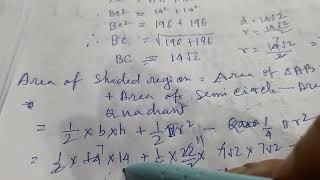 BC² = 14² + 14²
BC² = 196 + 196
∴ BC = √196+196
BC = 14√2
d = 14√2
r = 14√2
r =
Area of Shaded region = Area of ΔAB
= + Area of Semicircle — Are
Quadrant
= 1/2 × b × h + 1/2 πr² − 1/4 πr²
= 1/2 × 14 × 14 + 1/2 × 22/7 × 7√2 × 7√2 −